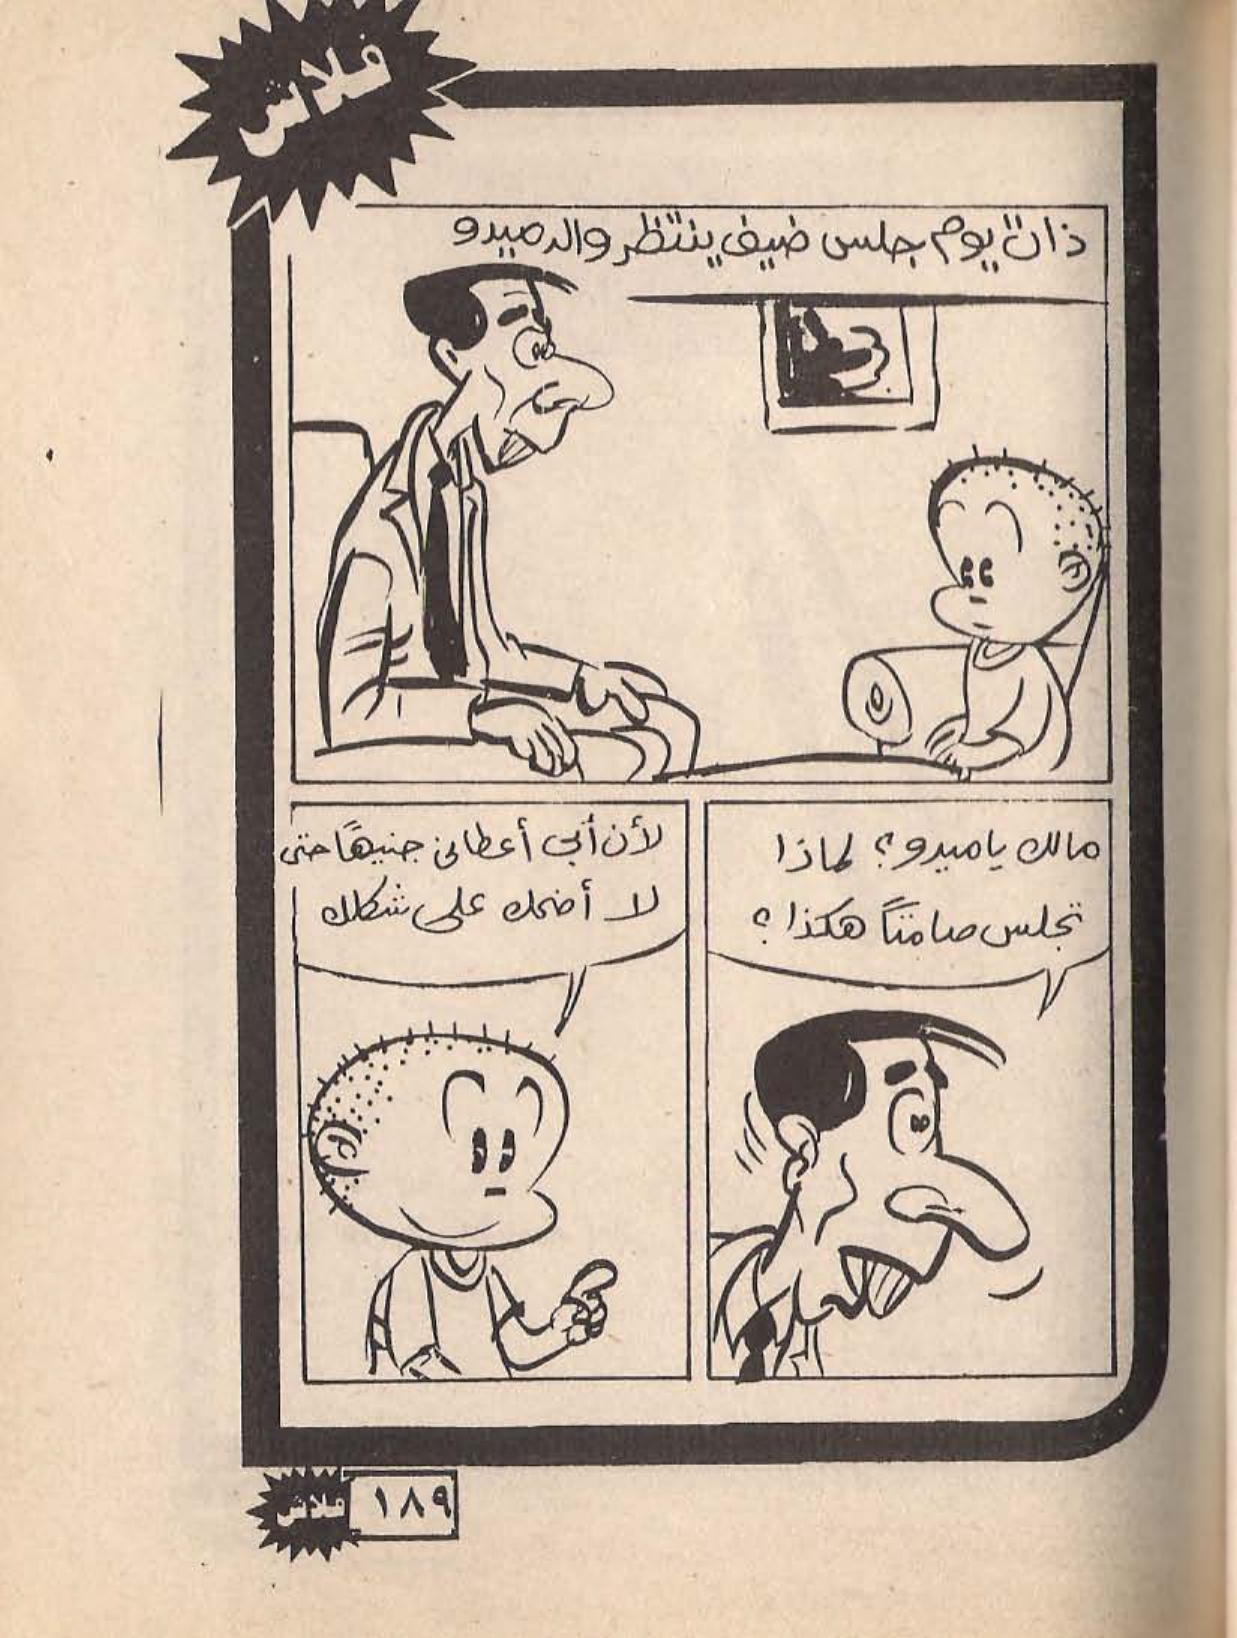 فلاش
ذات يوم جلس ضيف ينتظر والد ميدو
مالك يا ميدو؟ لماذا
تجلس صامتاً هكذا؟
لأن أبى أعطانى جنيهًا حتى
لا أضحك على شكلك
فلاش
١٨٩